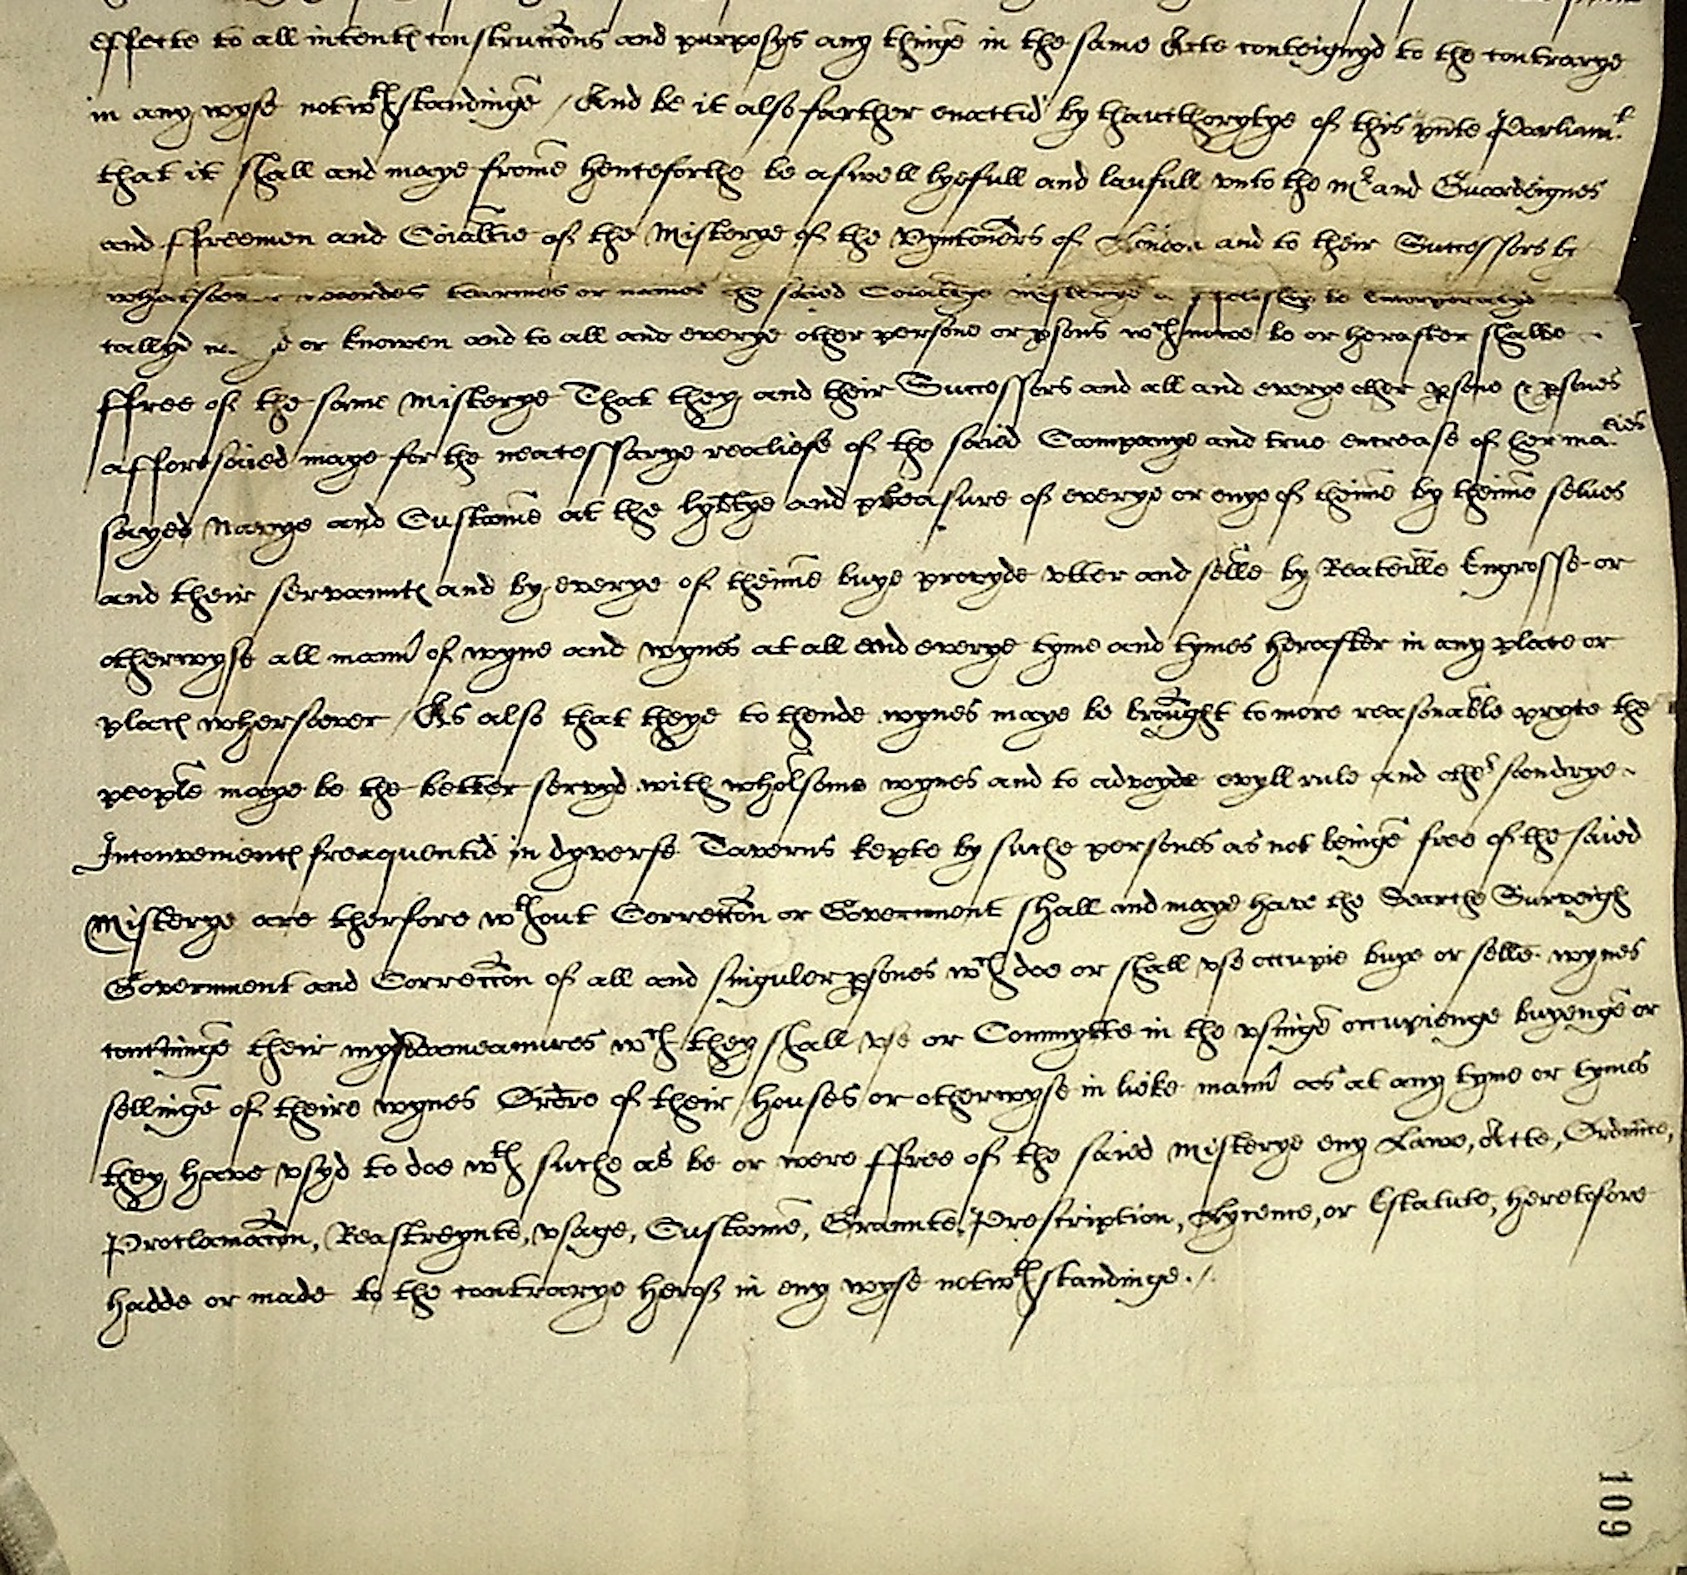 effecte to all intentes constructions and purposys any thinge in the same Acte conteignyd to the contrarye
in any wyse notwthstandinge / And be it also farther enactid by thaucthorytye of this pnte Parliamt
that it shall and maye frome henceforthe be aswell lyefull and laufull vnto the mr and Guardeignes
and ffreemen and Coialtie of the Misterye of the Vyntoners of London and to their Successors by
wordes tearmes or names the saied Coialtye misterye be Incorporatyd
callyd or knowen and to all and everye other persone or psons wch nowe be or herafter shalbe
ffree of the same Misterye That they and their Successors and all and everye other psone & psones
afforesaied maye for the neacessarye realiefe of the saied Companye and true encrease of her maties
sayed Navye and Custome at the lybtye and pleasure of everye or enye of theime by theime selves
and their servauntes and by everye of theime buye provyde vtter and selle by Reateille Engrosse or
otherwyse all mann of wyne and wynes at all and everye tyme and tymes herafter in any place or
places whersoever / As also that theye to thende wynes maye be brought to more reasonable pryce the
people maye be the better servyd with wholsome wynes and to advoyde evyll rule and other soondrye
Inconvenientes freaquentid in dyverse Taverns kepte by suche persones as not beinge free of the saied
Misterye are therfore wthout Correccon or Government shall and maye have the Searche Surveigh
Government and Correccon of all and singuler psones wch doe or shall vse occupie buye or selle wynes
their mysdeameanures wch they shall vse or Commytte in the vsinge occupienge buyenge or
sellinge of theire wynes Ordre of their houses or otherwyse in lieke mann as at any tyme or tymes
they have vsyd to doe wth suche as be or were ffree of the saied Misterye eny Lawe, Acte, Ordnnce,
Proclamacon, Reastreynte, vsage, Custome, Graunte, Prescription, Lycence, or Estatute, heretofore
hadde or made to the contrarye herof in eny wyse notwthstandinge ./
109